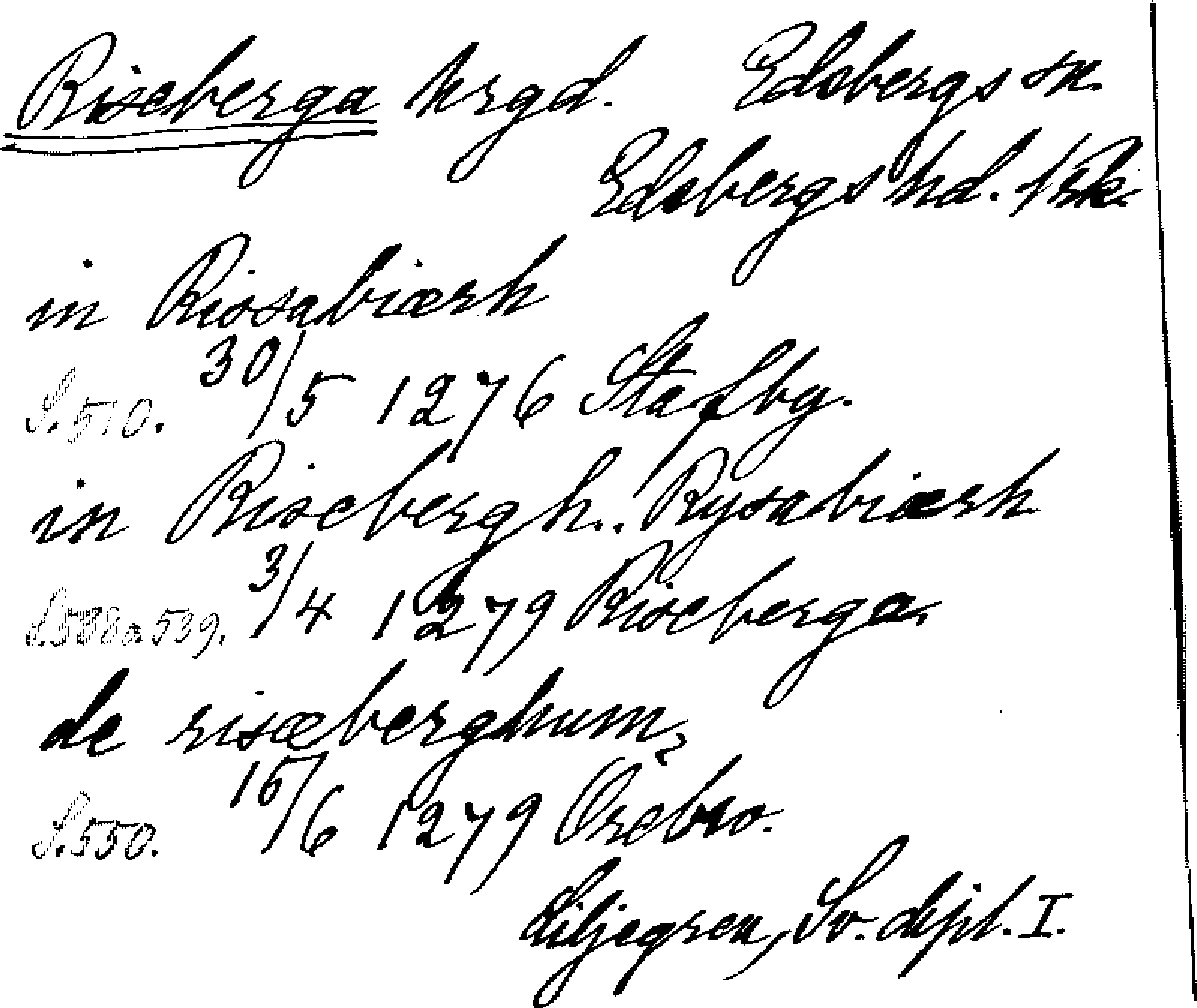 Riseberga hrgd. Edsbergs sn.
Edsbergs hd.
in Rissabiærk
S. 510. 30/5 1276 Stafby.
in Risebergh. Rysabiærk
S. 538 a 539. 3/4 1279 Riseberga
de risæberghum
S. 550. 15/6 1279 Örebro.
Liljegren, Sv. dipl. I.